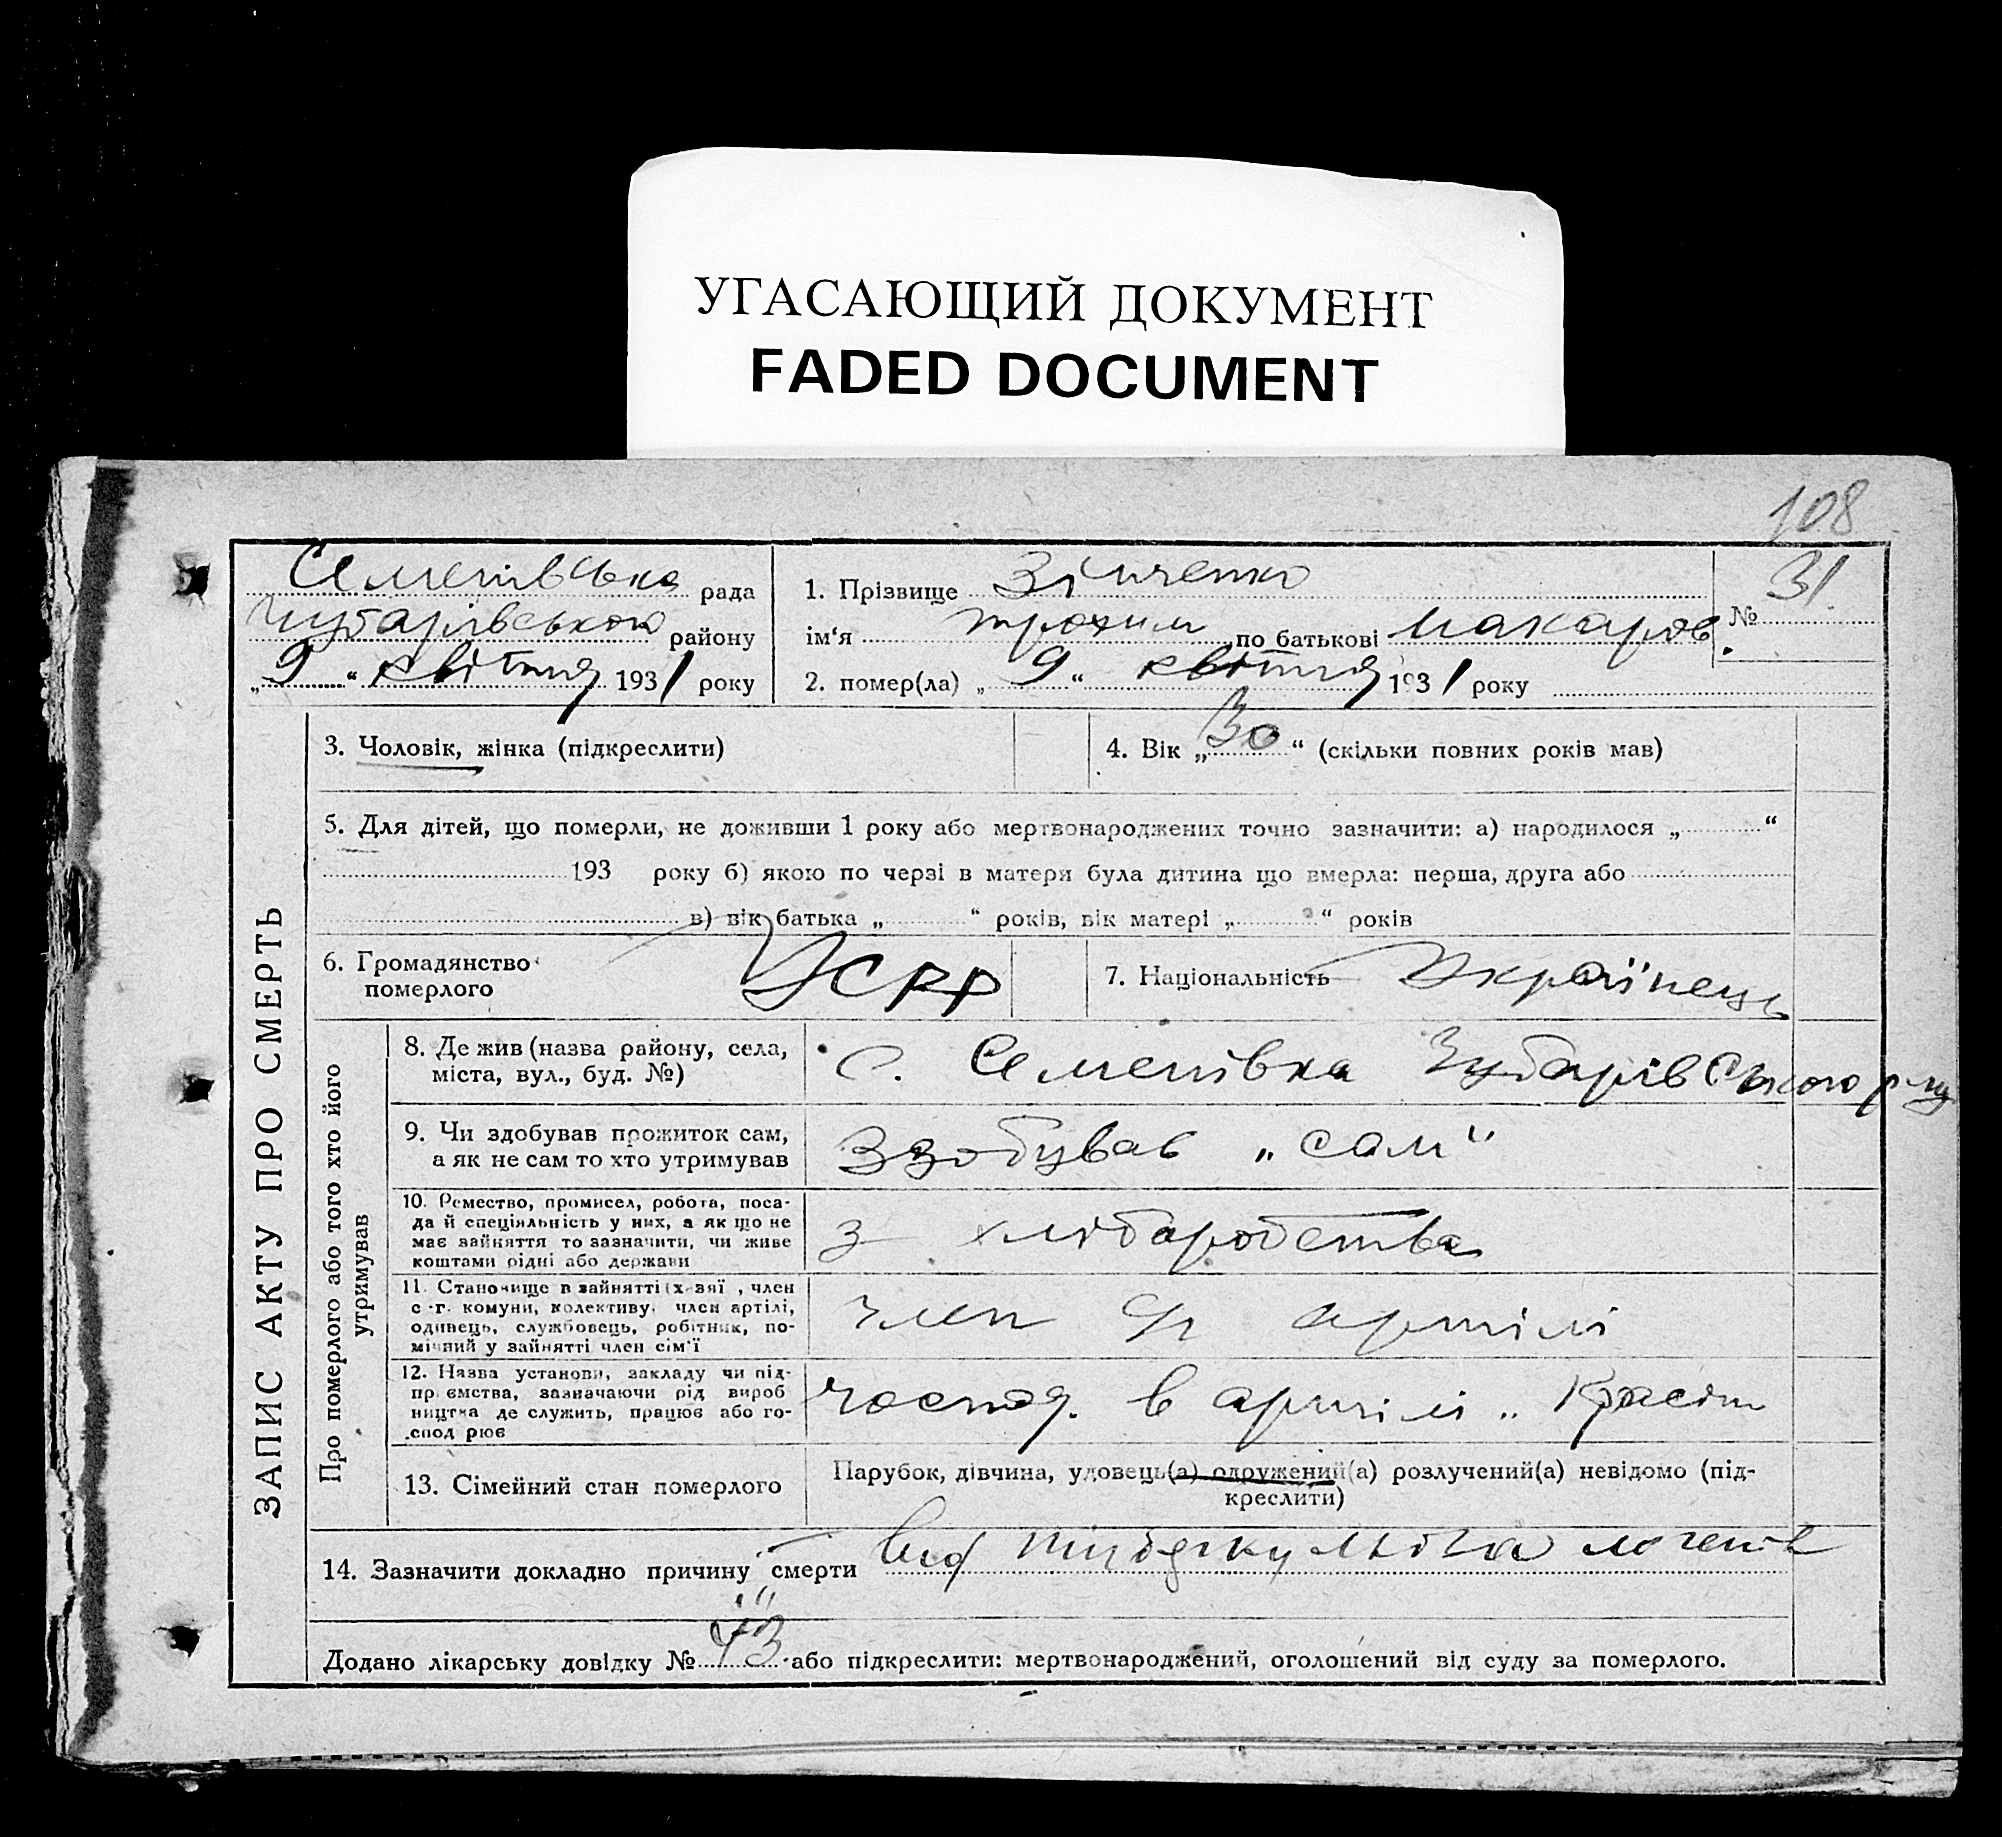 УГАСАЮЩИЙ ДОКУМЕНТ
FADED DOCUMENT
108
Семенівська рада
Чубарівського району
„9“ квітня 1931 року
1. Прізвище Зінченко
ім‘я трохим по батькові Макаров.
№ 31.
2. помер(ла) „9“ квітня 1931 року
ЗАПИС АКТУ ПРО СМЕРТЬ
3. Чоловік, жінка (підкреслити)
4. Вік „30“ (скільки повних років мав)
5. Для дітей, що померли, не доживши 1 року або мертвонароджених точно зазначити: а) народилося „ “
193 року б) якою по черзі в матери була дитина що вмерла: перша, друга або
в) вік батька „ “ років, вік матері „ “ років
6. Громадянство
померлого
УСРР
7. Національність Українець
Про померлого або того хто його
утримував
8. Де жив (назва району, села,
міста, вул., буд. №)
с. Семенівка Чубарівського р-ну
9. Чи здобував прожиток сам,
а як не сам то хто утримував
Ззобував „сам“
10. Ремество, промисел, робота, поса-
да й спеціяльність у них, а як що не
має зайняття то зазначити, чи живе
коштами рідні або держави
з хлібаробства
11. Становище в зайнятті (х-зяї , член
с -г. комуни, колективу, член артілі,
одинець, службовець, робітник, по-
мічний у зайнятті член сім‘ї
член артілі
12. Назва установи, закладу чи під-
приємства, зазначаючи рід вироб
ництва де служить, працює або го-
спод рює
господ. в артілі „
13. Сімейний стан померлого
Парубок, дівчина, удовець(а) одружений(а) розлучений(а) невідомо (під-
креслити)
14. Зазначити докладно причину смерти
від тубэркульоза легенів
Додано лікарську довідку № 73 або підкреслити: мертвонароджений, оголошений від суду за померлого.